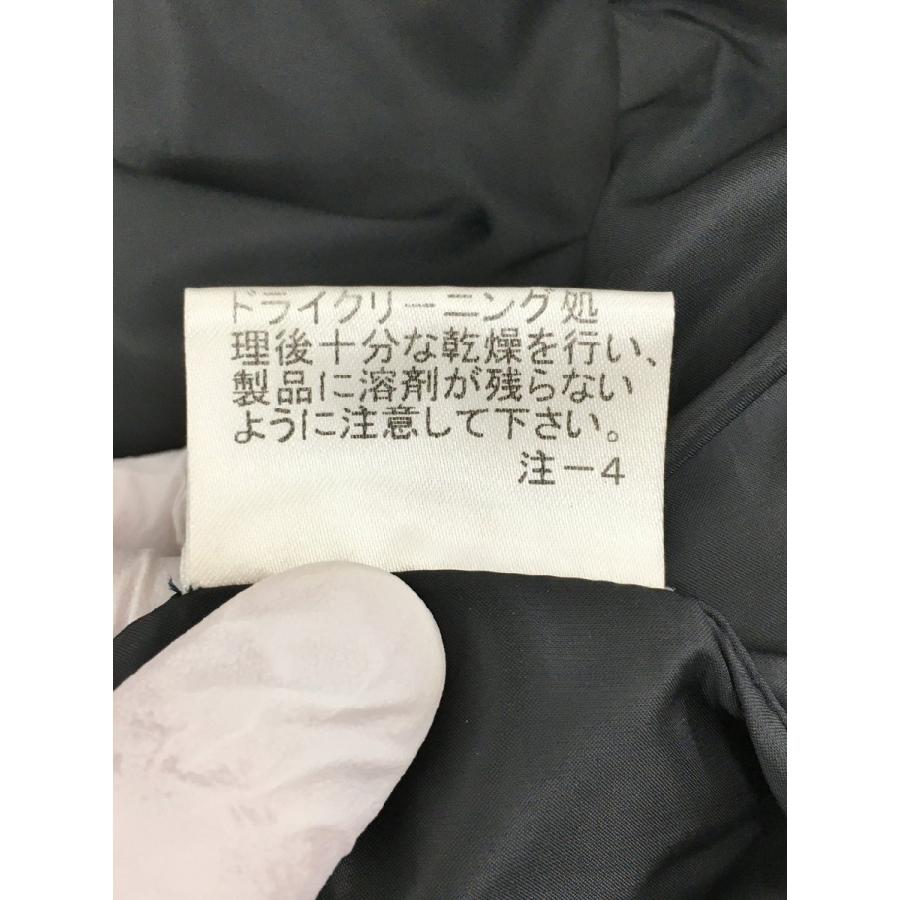 ドライクリーニング処
理後十分な乾燥を行い、
製品に溶剤が残らない
ように注意して下さい。
注－4